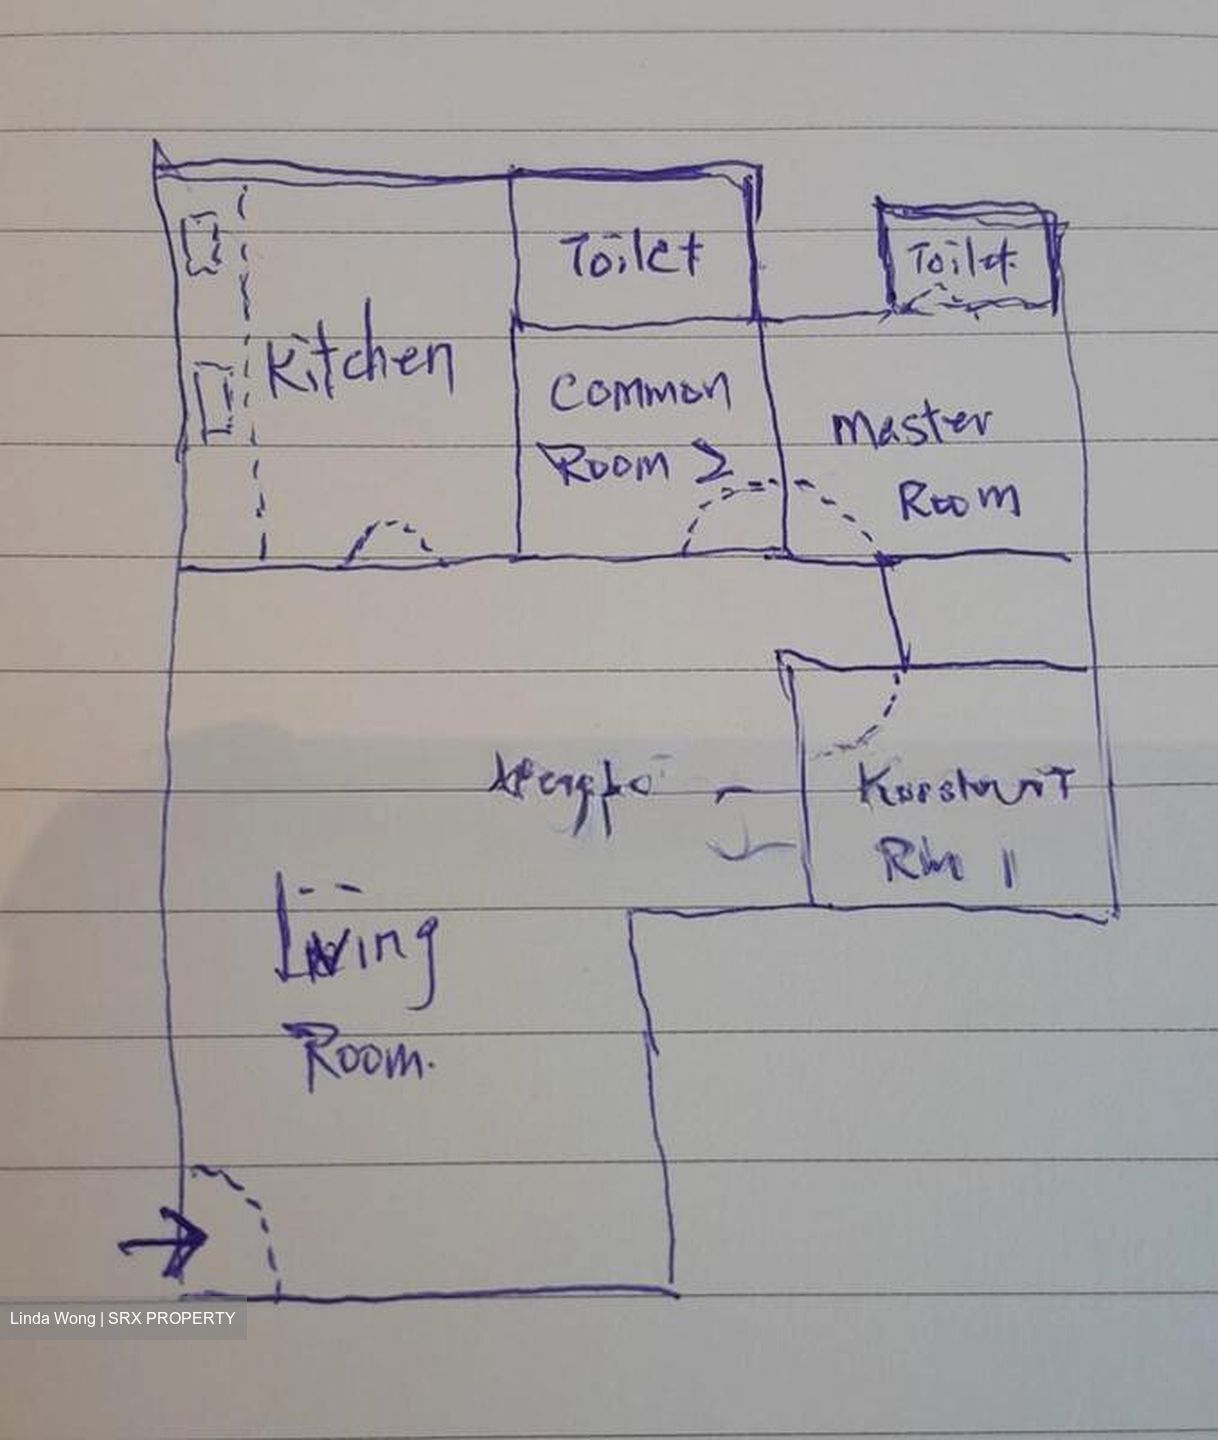 Toilet
Toilet
Kitchen
Common
Room 2
Master
Room
Rm 1
Living
Room.
Linda Wong | SRX PROPERTY